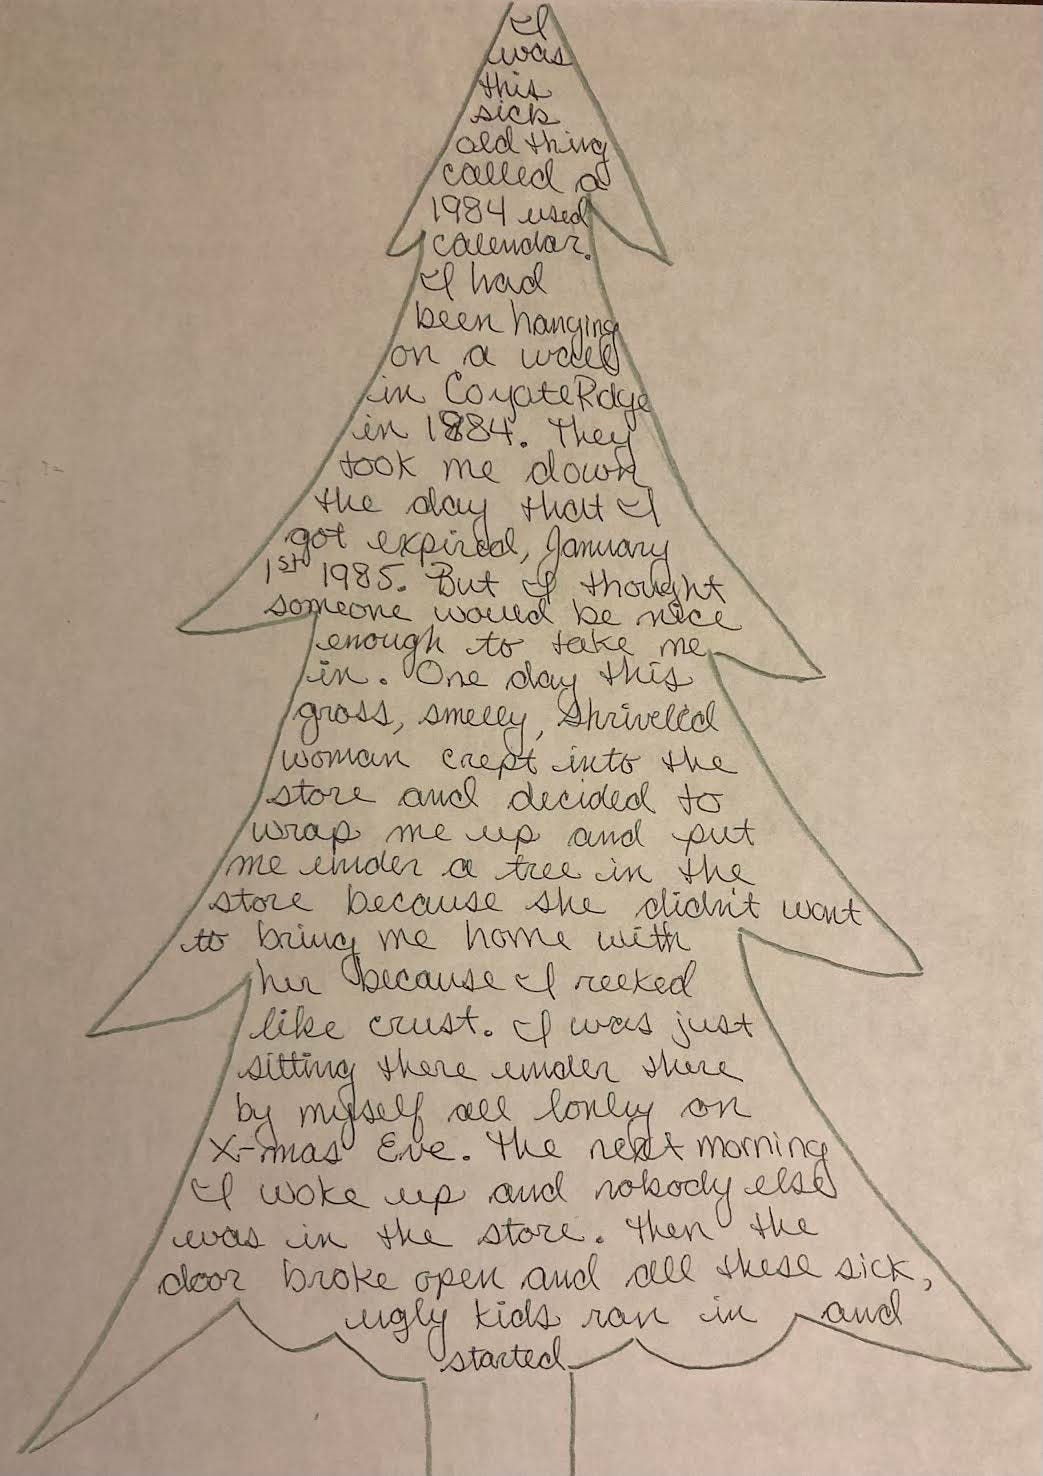 I
was
this
sick
old thing
called a
1984 used
calendar.
I had
been hanging
on a wall
in Coyote Rdge
in 1884. They
took me down
the day that I
got expired, January
1st 1985. But I thought
someone would be nice
enough to take me
in. One day this
gross, smelly, shriveled
woman crept into the
store and decided to
wrap me up and put
me under a tree in the
store because she didn't want
to bring me home with
her because I reeked
like crust. I was just
sitting there under there
by myself all lonley on
X-mas Eve. The next morning
I woke up and nobody else
was in the store. Then the
door broke open and all these sick,
ugly kids ran in and
started